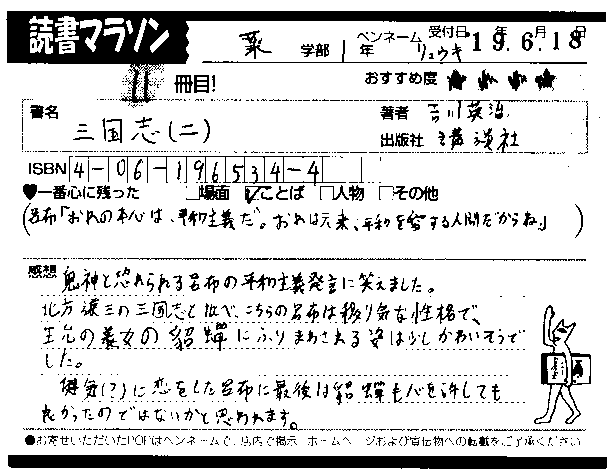 読書マラソン
薬 学部 1年 ペンネーム リュウキ 受付日 '19年 6月 18日
11 冊目! おすすめ度 ★★★★
書名 三国志(二) 著者 吉川英治
出版社 講談社
ISBN 4-06-196534-4
♥一番心に残った □場面 ☑ことば □人物 □その他
(呂布「おれの本心は、平和主義だ。おれは元来、平和を愛する人間だからね」)
感想 鬼神と恐れられる呂布の平和主義発言に笑えました。
北方謙三の三国志と比べ、こちらの呂布は移り気な性格で、
王允の養女の貂蝉にふりまわされる姿は少しかわいそうで
した。
健気(?)に恋をした呂布に最後は貂蝉も心を許しても
良かったのではないかと思われます。
●お寄せいただいたPOPはペンネームで、店内で掲示 ホームページおよび宣伝物への転載をご了承ください